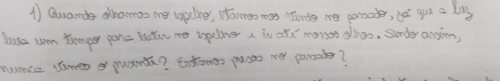 1) Quando olhamos no espelho, estamos nos vendo no passado, já que a luz
leva um tempo para bater no espelho e ir até nossos olhos. Sendo assim,
nunca vemos o presente? Estamos presos no passado?